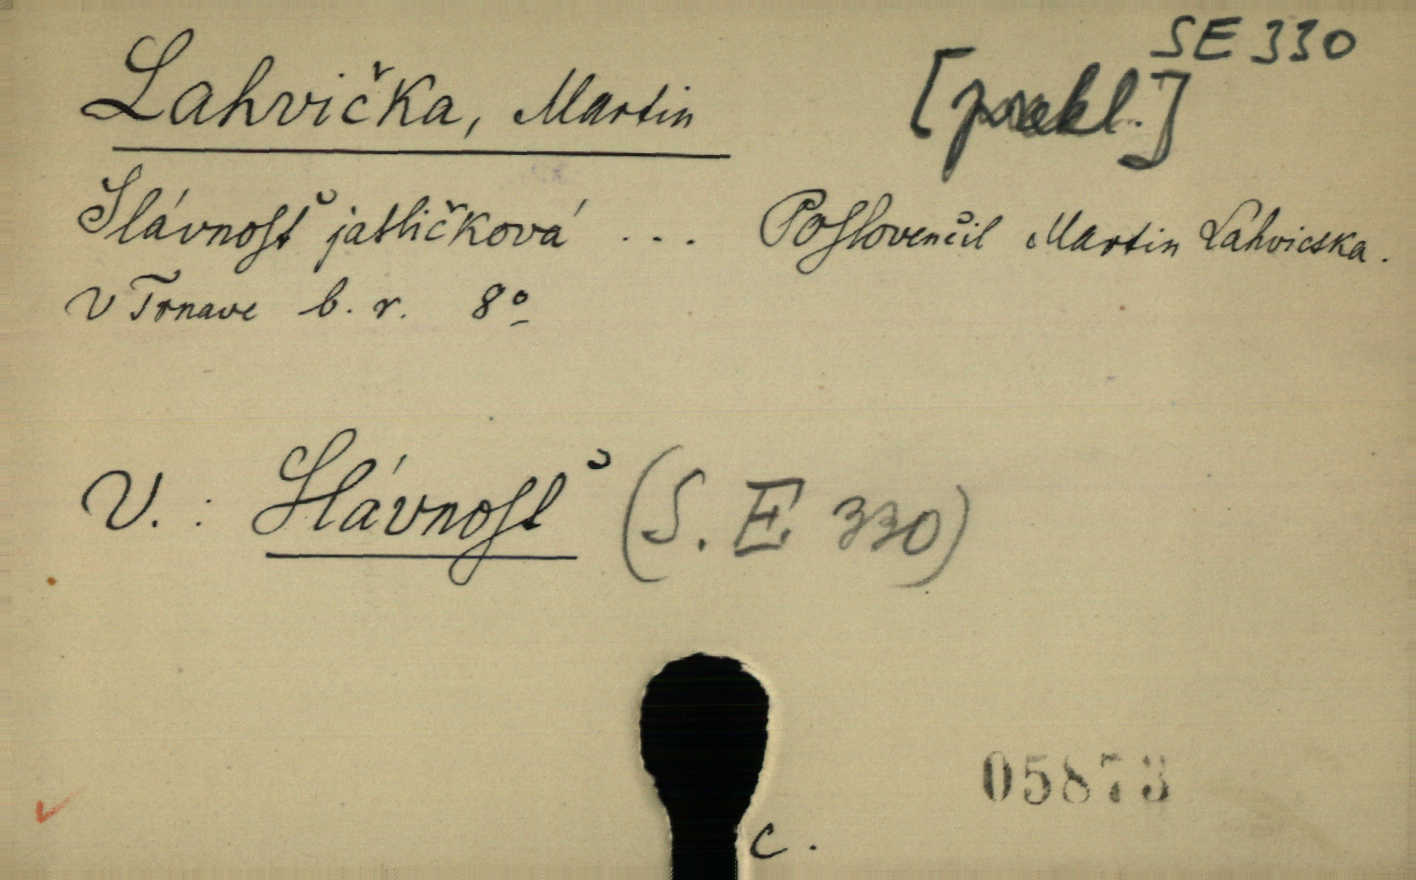 SE 330
Lahvička, Martin [prekl.]
Slávnosť jasličková ... Poslovenčil Martin Lahvicska.
V Trnave b. r. 8º
V.: Slávnosť (S. E 330)
05873
c.